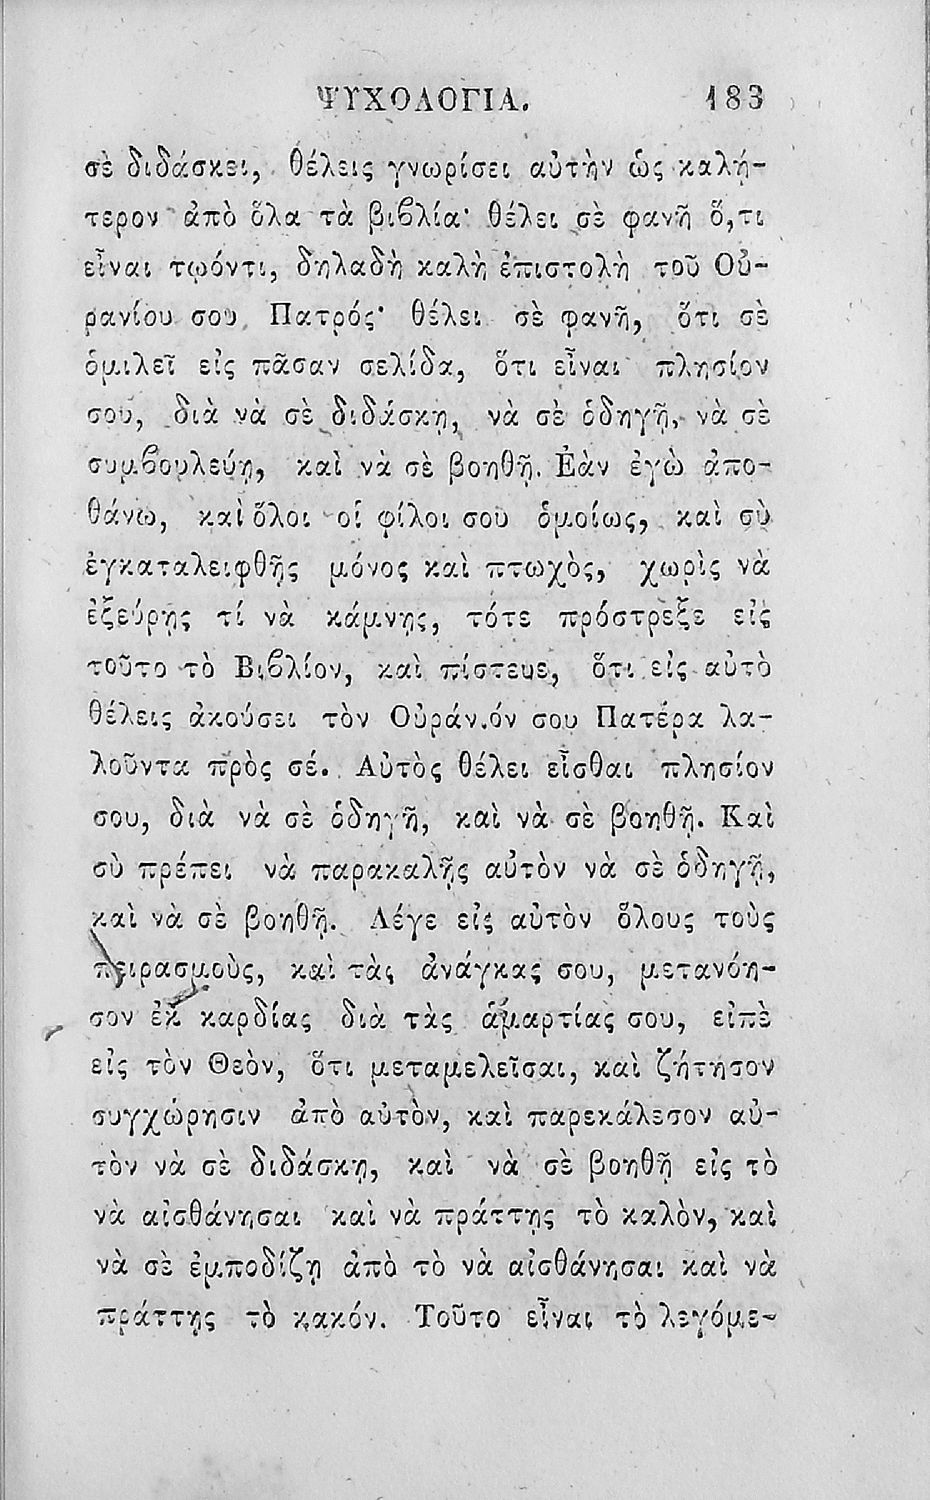 ΨΥΧΟΛΟΓΙΑ. 183
σὲ διδάσκει, θέλεις γνωρίσει αὐτὴν ὡς καλή-
τερον ἀπὸ ὅλα τὰ βιβλία· θέλει σὲ φανῆ ὅ,τι
εἶναι τῳόντι, δηλαδὴ καλὴ ἐπιστολὴ τοῦ Οὐ-
ρανίου σου Πατρός· θέλει σὲ φανῆ, ὅτι σὲ
ὁμιλεῖ εἰς πᾶσαν σελίδα, ὅτι εἶναι πλησίον
σου, διὰ νὰ σὲ διδάσκῃ, νὰ σὲ ὁδηγῇ, νὰ σὲ
συμβουλεύῃ, καὶ νὰ σὲ βοηθῇ. Ἐὰν ἐγὼ ἀπο-
θάνω, καὶ ὅλοι οἱ φίλοι σου ὁμοίως, καὶ σὺ
ἐγκαταλειφθῇς μόνος καὶ πτωχὸς, χωρὶς νὰ
ἐξεύρῃς τί νὰ κάμνῃς, τότε πρόστρεξε εἰς
τοῦτο τὸ Βιβλίον, καὶ πίστευε, ὅτι εἰς αὐτὸ
θέλεις ἀκούσει τὸν Οὐράνιόν σου Πατέρα λα-
λοῦντα πρὸς σέ. Αὐτὸς θέλει εἶσθαι πλησίον
σου, διὰ νὰ σὲ ὁδηγῇ, καὶ νὰ σὲ βοηθῇ. Καὶ
σὺ πρέπει νὰ παρακαλῇς αὐτὸν νὰ σὲ ὁδηγῇ,
καὶ νὰ σὲ βοηθῇ. Λέγε εἰς αὐτὸν ὅλους τοὺς
πειρασμοὺς, καὶ τὰς ἀνάγκας σου, μετανόη-
σον ἐκ καρδίας διὰ τὰς ἁμαρτίας σου, εἰπὲ
εἰς τὸν Θεὸν, ὅτι μεταμελεῖσαι, καὶ ζήτησον
συγχώρησιν ἀπὸ αὐτὸν, καὶ παρεκάλεσον αὐ-
τὸν νὰ σὲ διδάσκῃ, καὶ νὰ σὲ βοηθῇ εἰς τὸ
νὰ αἰσθάνησαι καὶ νὰ πράττῃς τὸ καλὸν, καὶ
νὰ σὲ ἐμποδίζῃ ἀπὸ τὸ νὰ αἰσθάνησαι καὶ νὰ
πράττῃς τὸ κακόν. Τοῦτο εἶναι τὸ λεγόμε-